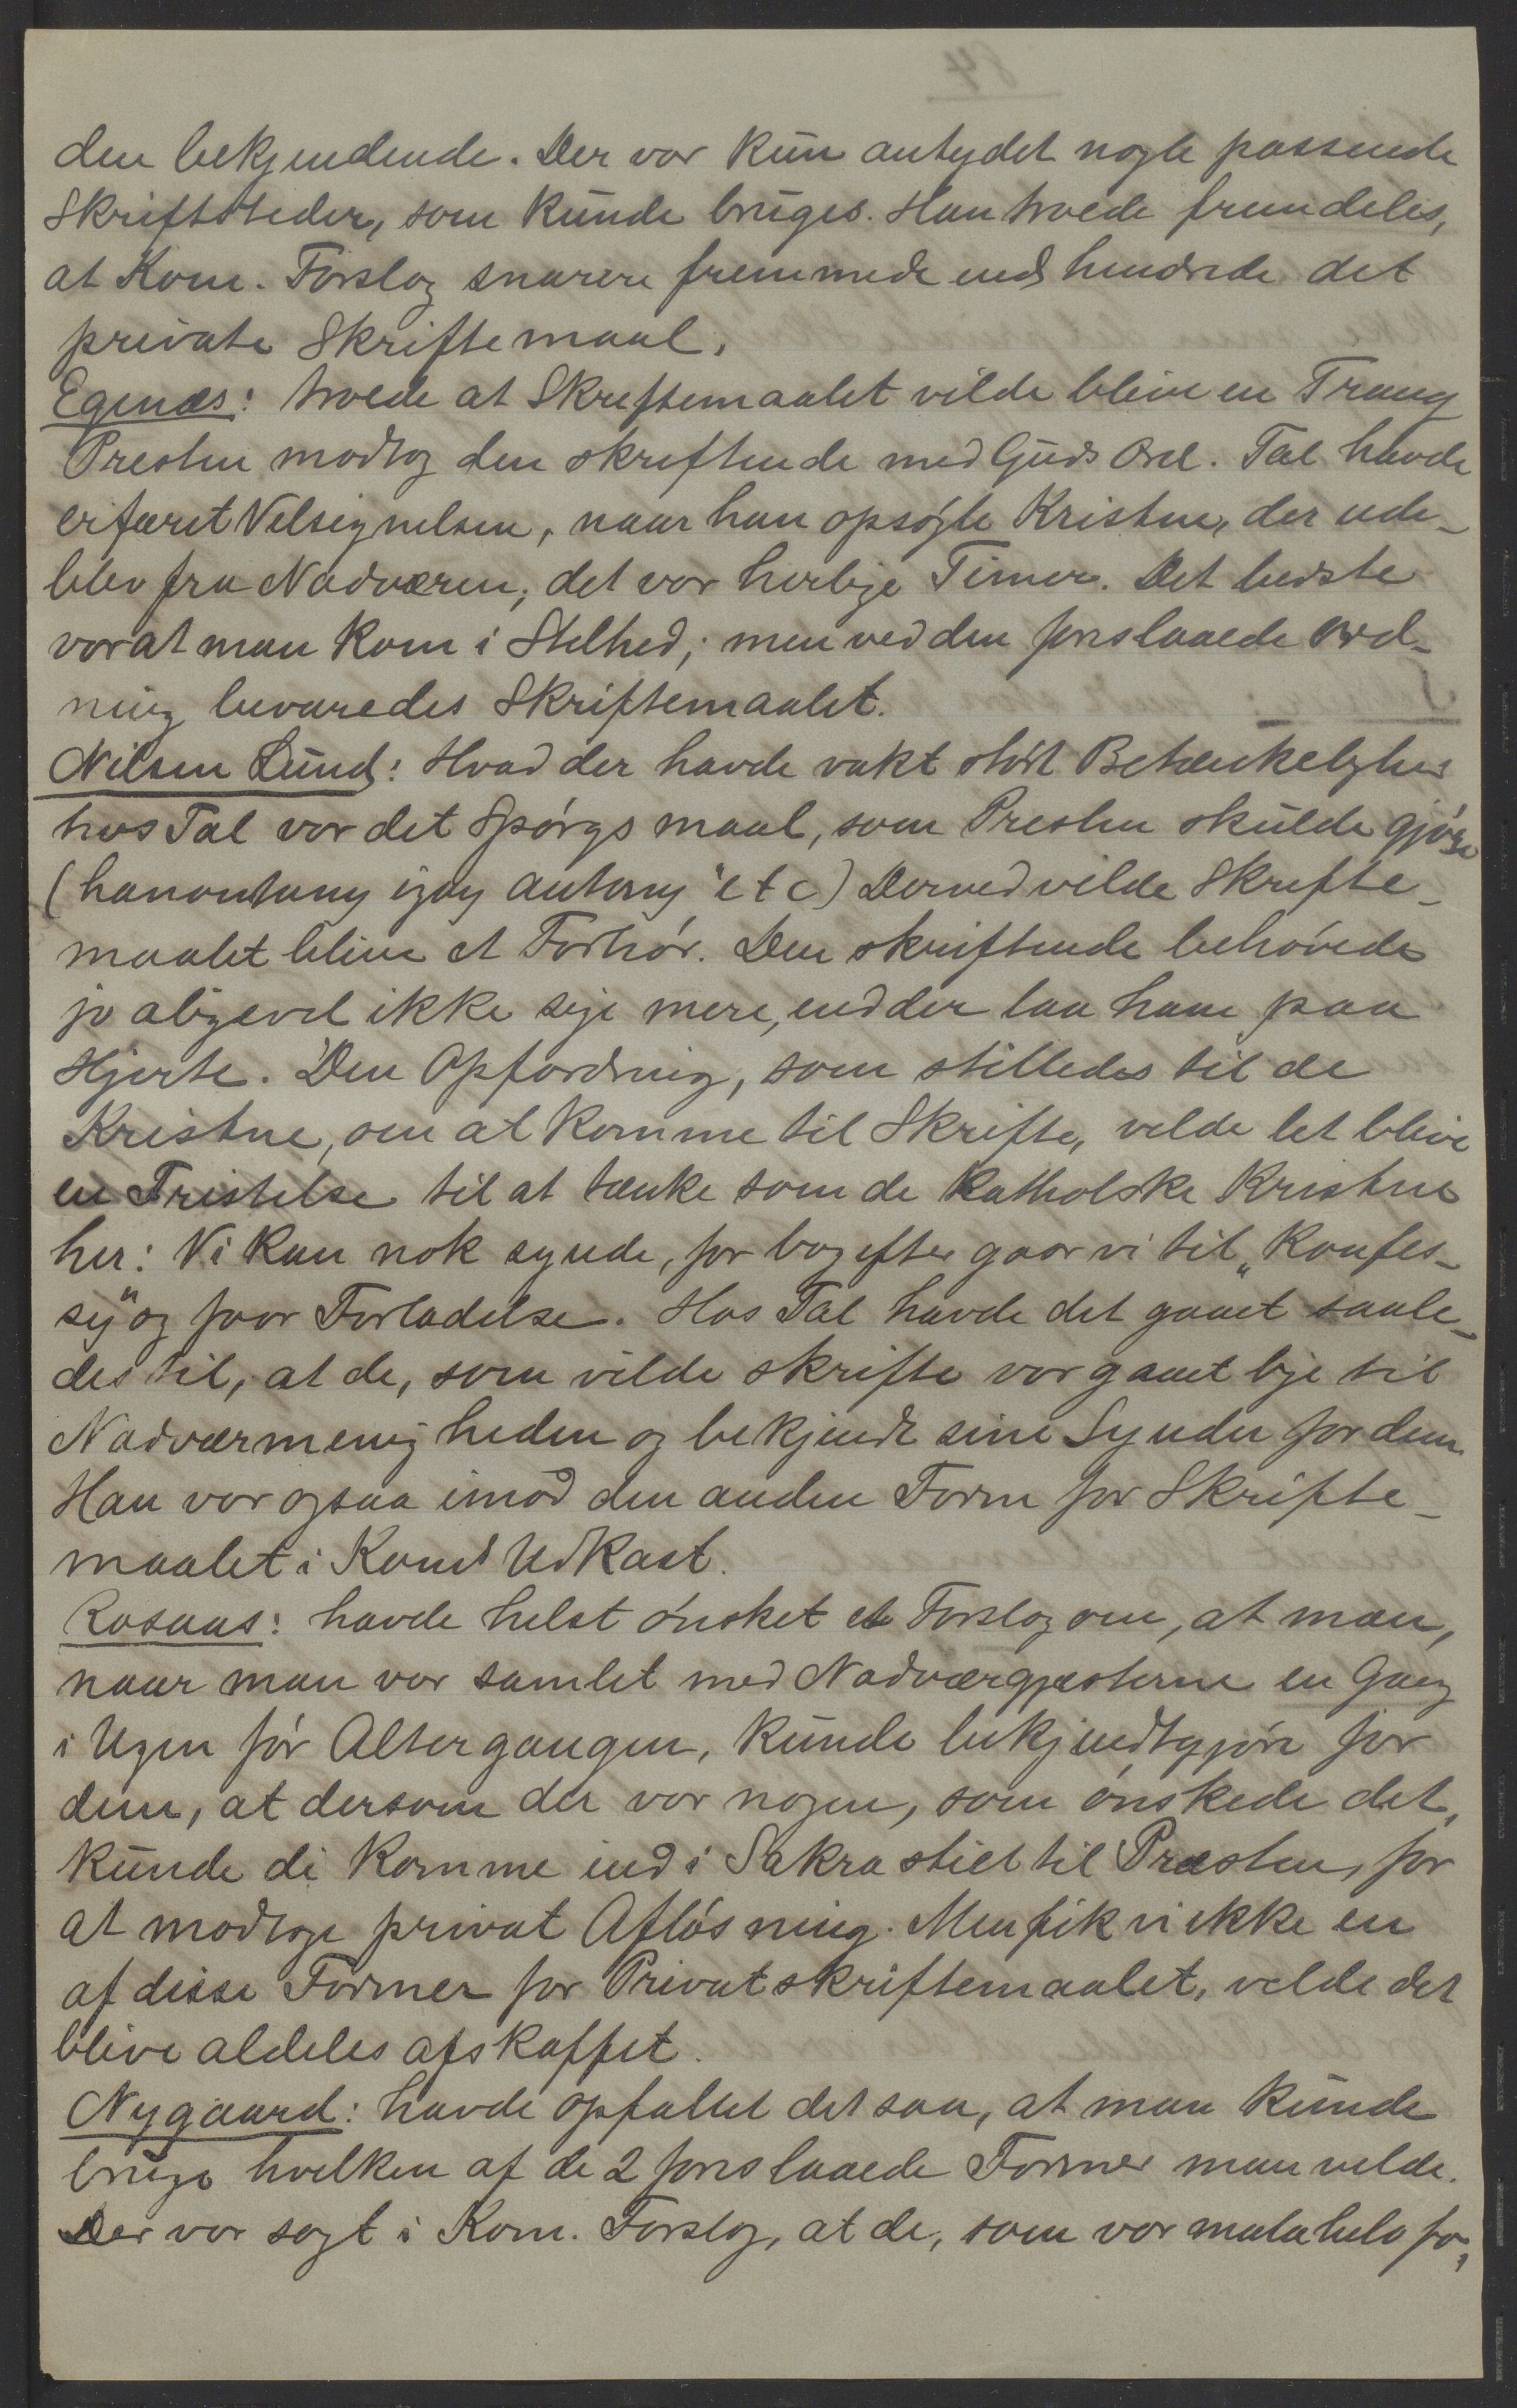 den bekjendende. Der var kun antydet nogle passende
Skriftsteder, som kunde bruges. Han troede fremdeles,
at Kom. Forslag snarere fremmede end hindrede det
private Skriftemaal.
Egenæs: troede at Skriftemaalet vilde blive en Trang
Presten modtog den skriftende med Guds Ord. Tal. havde
erfaret Velsignelsen, naar han opsøgte Kristne, der ude-
blev fra Nadveren; det var herlige Timer. Det bedste
var at man kom i Stilhed; men ved den foreslaaede Ord-
ning bevaredes Skriftemaalet.
Nilsen Lund: Hvad der havde vakt størst Betænkelighed
hos Tal var det Spørgsmaal, som Presten skulde gjøre
(hanontany izay antony "etc) Derved vilde Skrifte-
maalet blive et Forhør. Den skriftende behøvede
jo aligevel ikke sige mere, end der laa ham paa
Hjerte. Den Opfordring, som stilledes til de
Kristne, om at komme til Skrifte, vilde let blive
en Fristelse til at tænke som de Katholske Kristne
her: Vi kan nok synde, for bagefter gaar vi til „Konfes-
sy" og faar Forladelse. Hos Tal havde det gaaet saale-
des til, at de, som vilde skrifte var gaaet lige til
Nadværmenigheden og bekjendt sine Synder for dem.
Han var ogsaa imod den anden Form for Skrifte-
maalet i Koms Udkast.
Rosaas: havde helst ønsket et Forslag om, at man,
naar man var samlet med Nadværgjæsterne en Gang
i Ugen før Altergangen, kunde bekjendtgjøre for
dem, at dersom der var nogen, som ønskede det,
kunde de komme ind i Sakrastiet til Præsten, for
at modtage privat Afløsning. Men fik vi ikke en
af disse Former for Privatskriftemaalet, vilde det
blive aldeles afskaffet.
Nygaard: havde opfattet det saa, at man kunde
bruge hvilken af de 2 foreslaaede Former man vilde.
Der var sagt i Kom. Forslag, at de, som var malahelo fo,